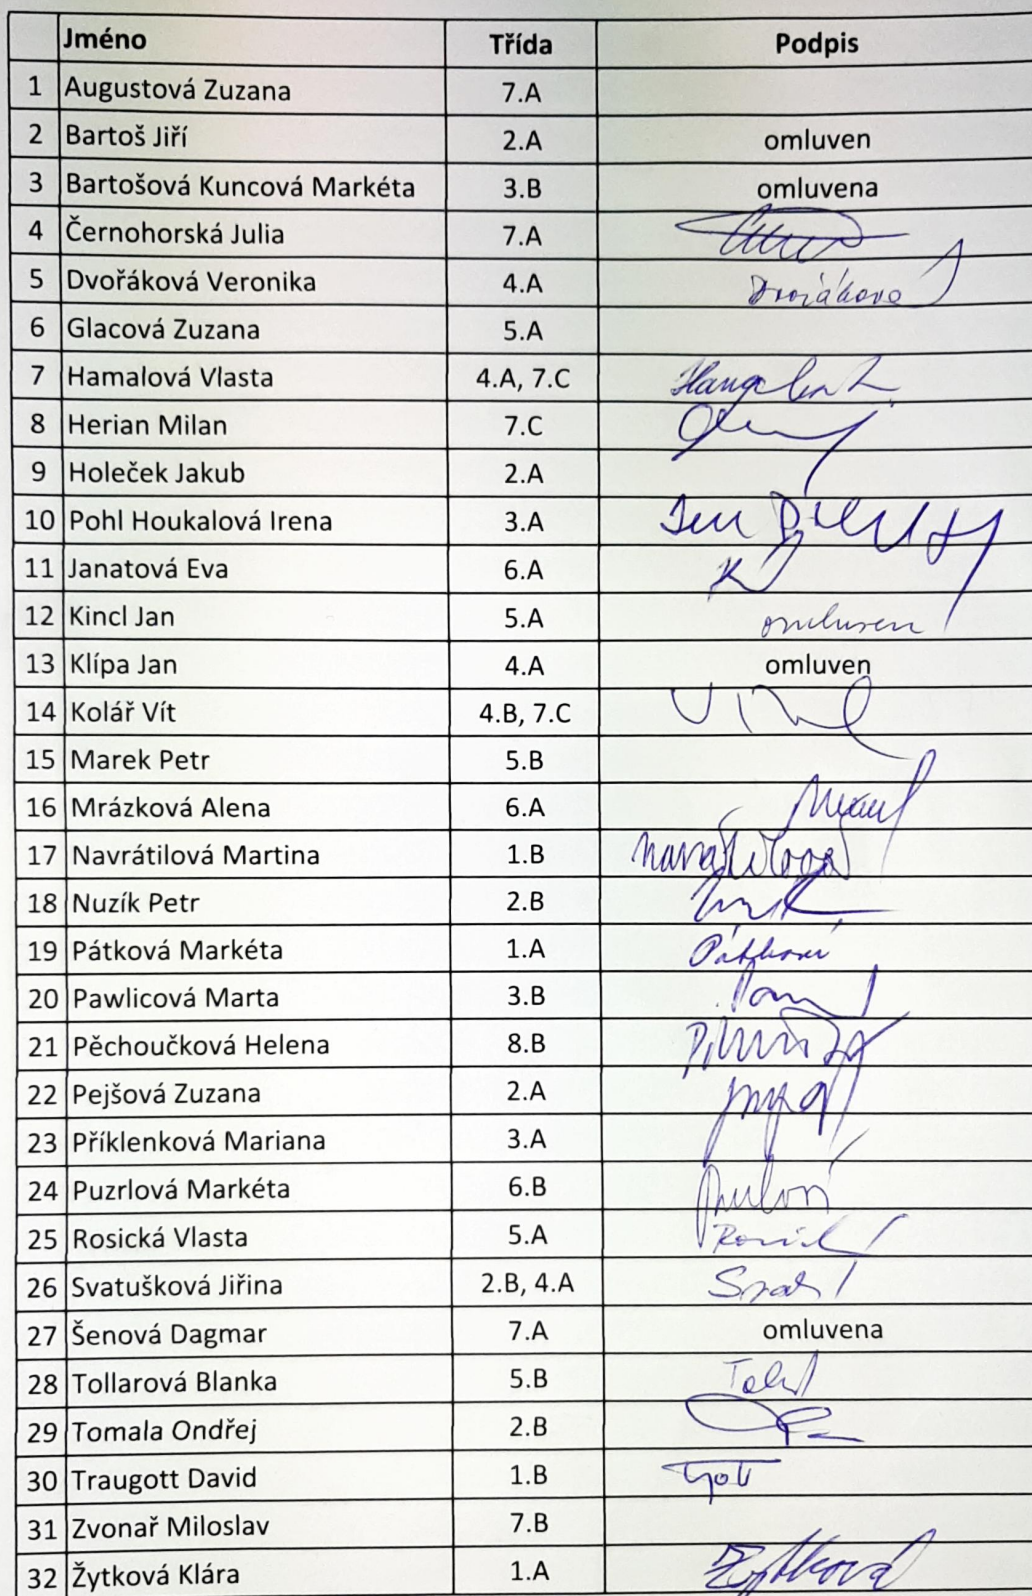 Jméno Třída Podpis
1 Augustová Zuzana 7.A
2 Bartoš Jiří 2.A omluven
3 Bartošová Kuncová Markéta 3.B omluvena
4 Černohorská Julia 7.A
5 Dvořáková Veronika 4.A Dvořáková
6 Glacová Zuzana 5.A
7 Hamalová Vlasta 4.A, 7.C
8 Herian Milan 7.C
9 Holeček Jakub 2.A
10 Pohl Houkalová Irena 3.A
11 Janatová Eva 6.A
12 Kincl Jan 5.A omluven
13 Klípa Jan 4.A omluven
14 Kolář Vít 4.B, 7.C
15 Marek Petr 5.B
16 Mrázková Alena 6.A
17 Navrátilová Martina 1.B Navrátilová
18 Nuzík Petr 2.B
19 Pátková Markéta 1.A Pátková
20 Pawlicová Marta 3.B
21 Pěchoučková Helena 8.B
22 Pejšová Zuzana 2.A
23 Příklenková Mariana 3.A
24 Puzrlová Markéta 6.B
25 Rosická Vlasta 5.A
26 Svatušková Jiřina 2.B, 4.A
27 Šenová Dagmar 7.A omluvena
28 Tollarová Blanka 5.B
29 Tomala Ondřej 2.B
30 Traugott David 1.B
31 Zvonař Miloslav 7.B
32 Žytková Klára 1.A Žytková